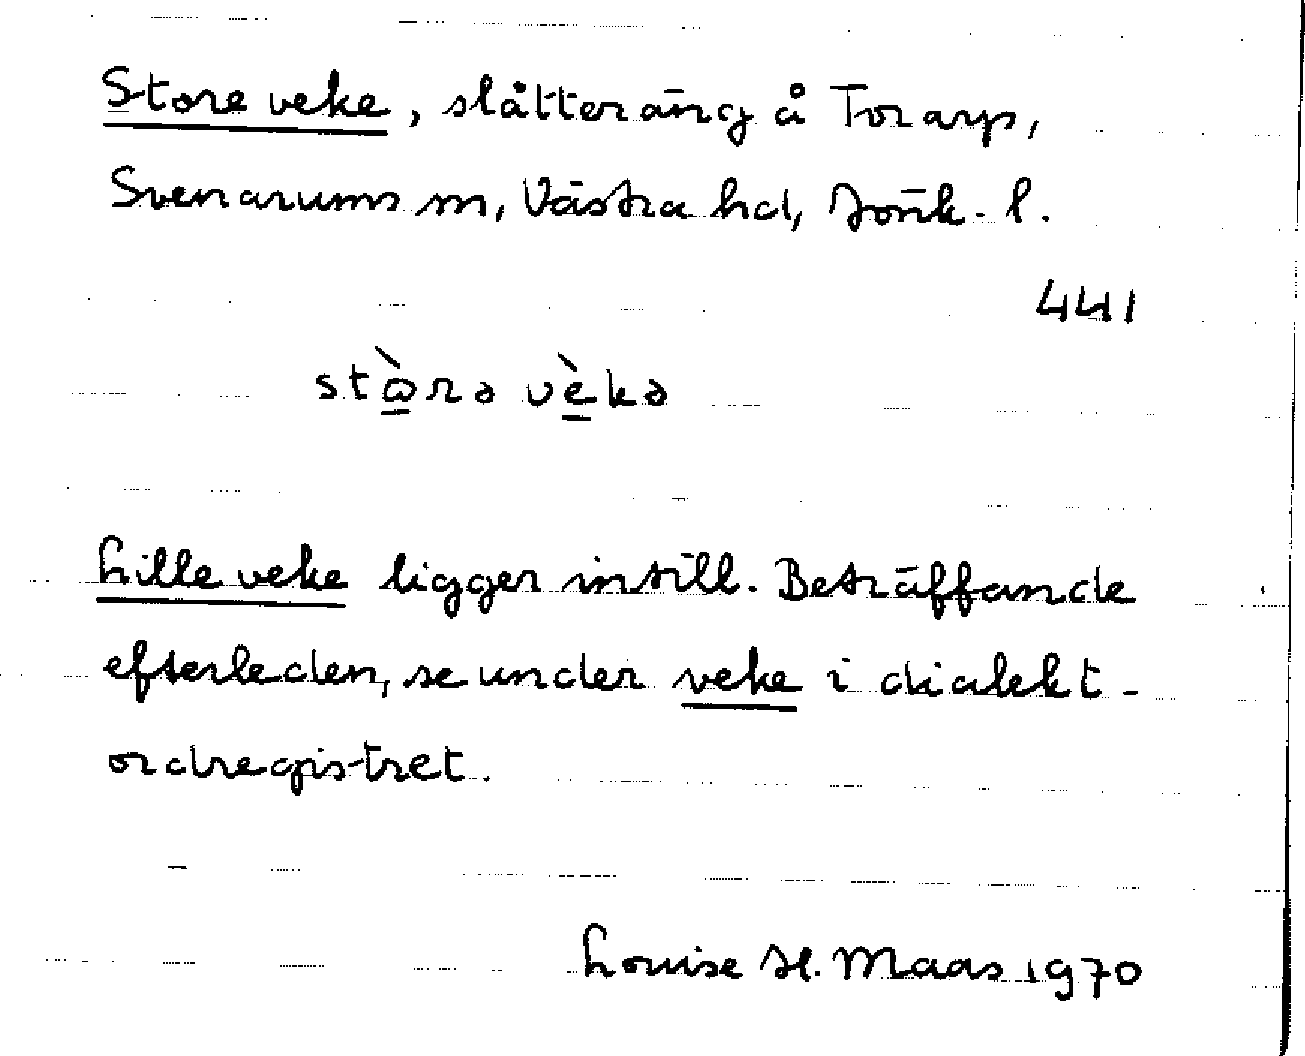 Store veke, slåtteräng å Torarp,
Svenarums sn, Västra hd, Jönk. l.
441
stòrə vèkə
Lille veke ligger intill. Beträffande
efterleden, se under veke i dialekt-
ordregistret.
Louise H. Maas 1970